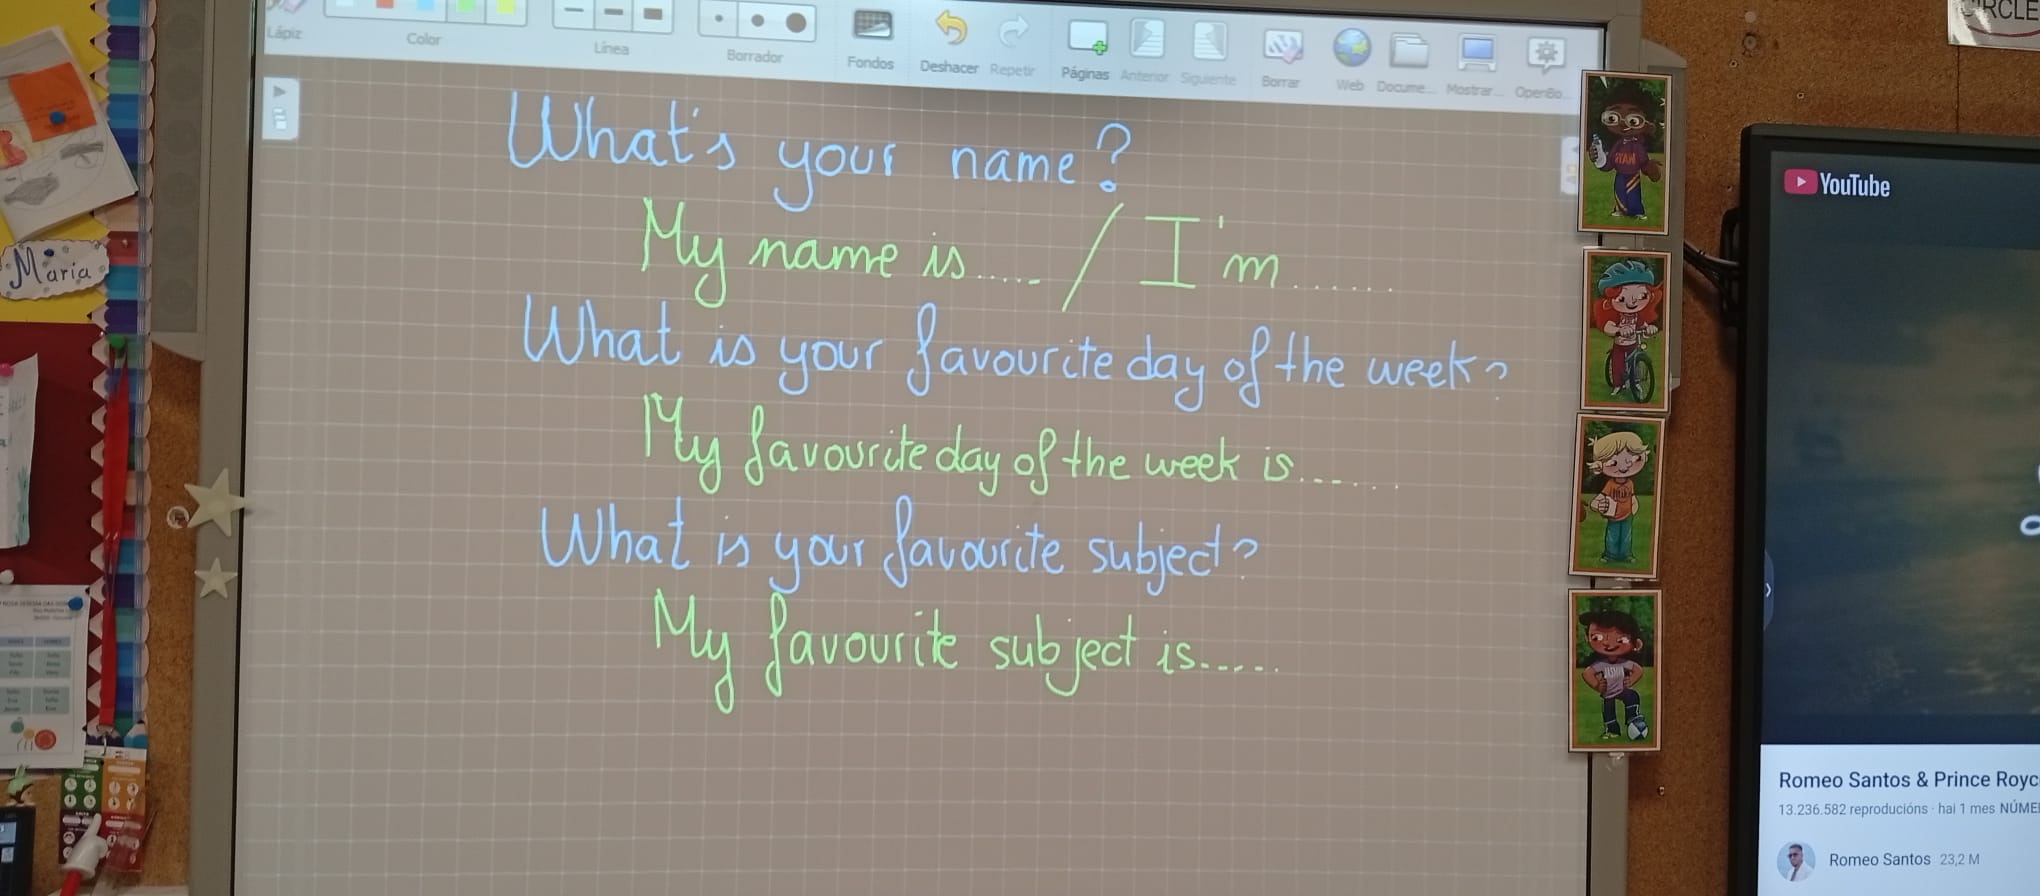 Lápiz
Color
Línea
Borrador
Fondos
Deshacer
Repetir
Páginas
Anterior
Siguiente
Borrar
Web
Docume...
Mostrar...
OpenBo...
What's your name?
My name is..... / I'm......
What is your favourite day of the week?
My favourite day of the week is......
What is your favourite subject?
My favourite subject is.....
Maria
CIRCLE
YouTube
Romeo Santos & Prince Royc
13.236.582 reproducións · hai 1 mes NÚME
Romeo Santos 23,2 M